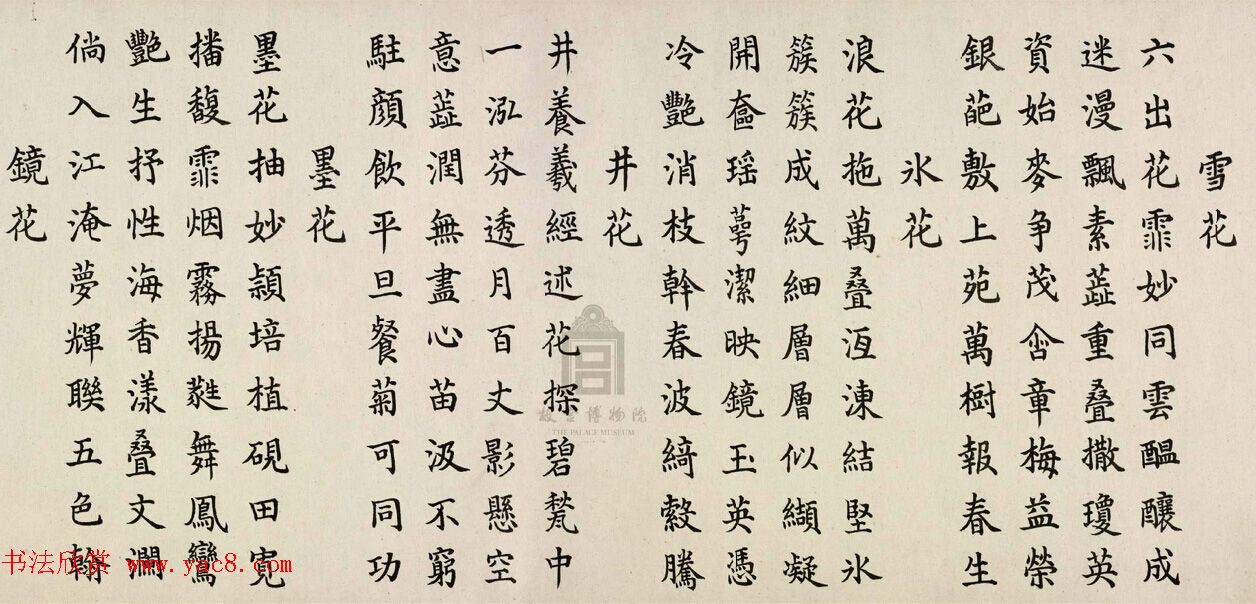 雪花
六出花霏妙同雲醖釀成
迷漫飄素蕋重叠撒瓊英
資始麥争茂含章梅益榮
銀葩敷上苑萬樹報春生
氷花
浪花拖萬叠沍凍結堅氷
簇簇成紋細層層似纈凝
開奩瑶萼潔映鏡玉英憑
冷艷消枝幹春波綺縠騰
井花
井養羲經述花探碧甃中
一泓芬透月百丈影懸空
意蕋潤無盡心苗汲不窮
駐顔飲平旦餐菊可同功
墨花
墨花抽妙穎培植硯田寛
播馥霏烟霧揚蕤舞鳳鸞
艷生抒性海香漾叠文瀾
倘入江淹夢輝聯五色翰
鏡花
故宫博物院
THE PALACE MUSEUM
书法欣赏 www.yac8.com